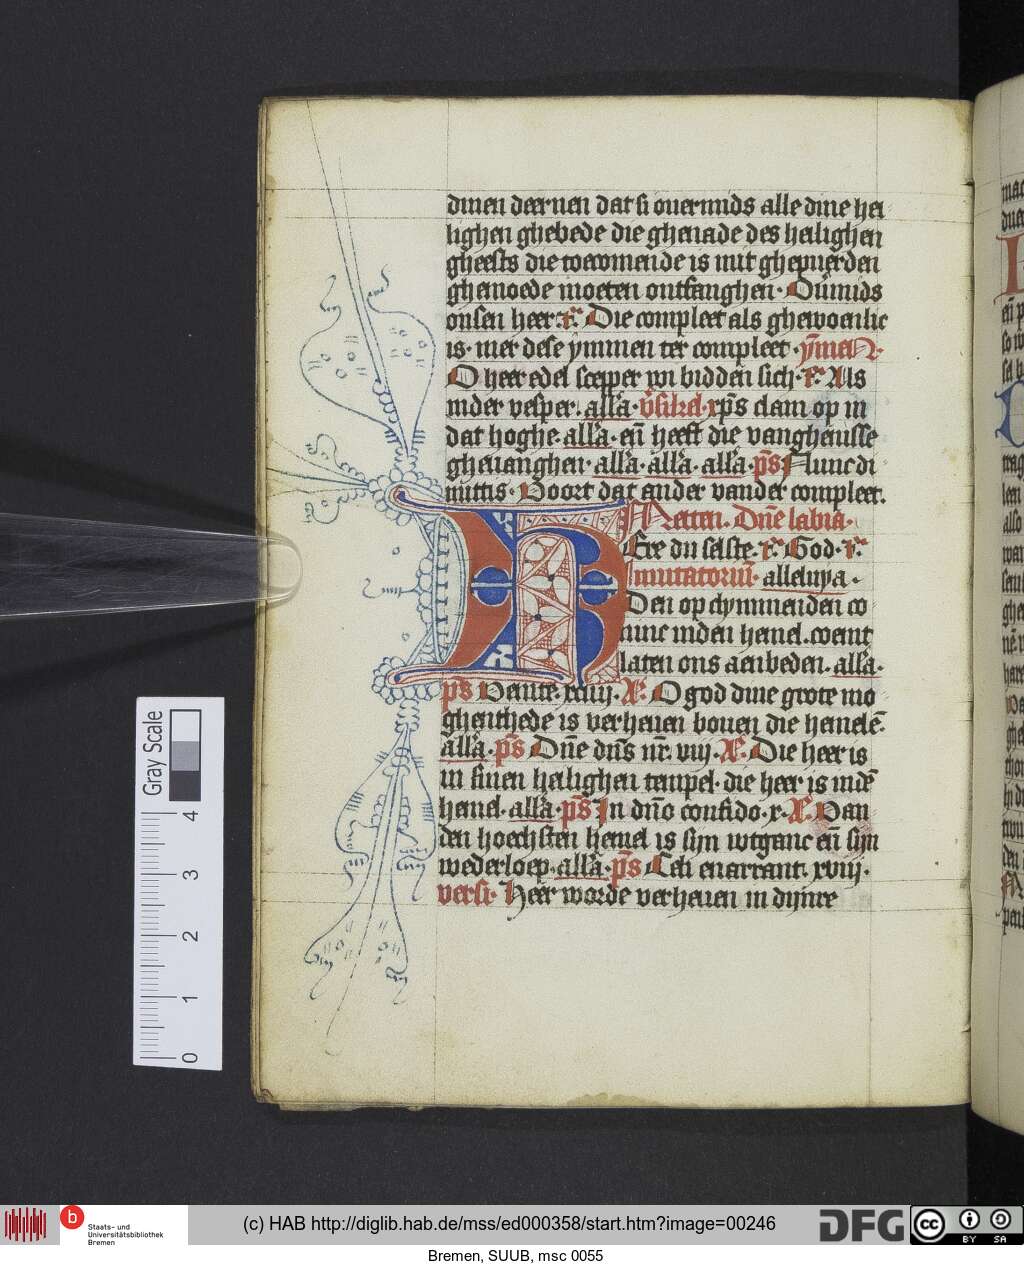 dinen deernen dat si ouermids alle dine hei
lighen ghebede die ghenade des heilighen
gheests die toecomende is mit ghepuerden
ghemoede moeten ontfanghen. Ouermids
onsen heer. Die compleet als ghewoenlic
is. mer dese ymmen ter compleet. ymen
O heer edel scepper wi bidden dich. Als
inder vesper. all'a. v'sikel. xp̄s clam op in
dat hoghe. all'a. eñ heeft die vanghenisse
gheuanghen. all'a. all'a. all'a. ps Nunc di
mittis. Voort dat ander vander compleet.
Metten. Dn̄e labia.
Ere du selste. God.
Inuitatoriū. alleluya.
Den op clymmenden co
ninc inden hemel. coemt
laten ons aenbeden. all'a.
ps Venite. xciiij. O god dine grote mo
ghenthede is verheuen bouen die hemelē.
all'a. ps Dn̄e dn̄s nr̄. viij. Die heer is
in sinen heilighen tempel. die heer is indē
hemel. all'a. ps In dn̄o confido. x. Van
den hoechsten hemel is sijn wtganc eñ sijn
wederloep. all'a. ps Celi enarrant. xviij.
versi. Heer worde verheuen in dijnre
Gray Scale
4
3
2
1
0
b
Staats- und
Universitätsbibliothek
Bremen
(c) HAB http://diglib.hab.de/mss/ed000358/start.htm?image=00246
DFG
cc
BY SA
Bremen, SUUB, msc 0055